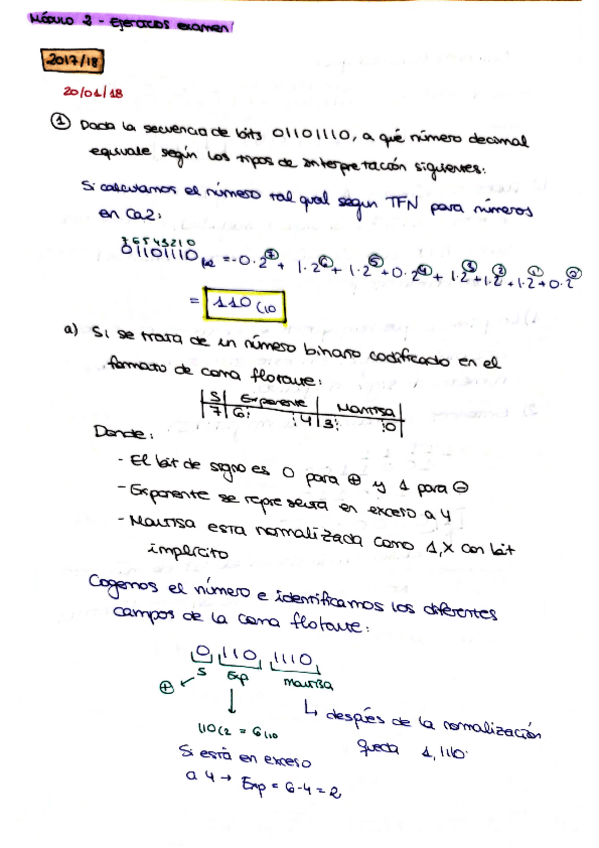 Módulo 2 - Ejercicios examen
2017/18
20/01/18
① Dada la secuencia de bits 01101110, a qué número decimal
equivale según los tipos de interpretación siguientes:
Si calculamos el número tal qual según TFN para números
en Ca2:
7 6 5 4 3 2 1 0
01101110 (2 = -0·2⁷ + 1·2⁶ + 1·2⁵ + 0·2⁴ + 1·2³ + 1·2² + 1·2¹ + 0·2⁰
= 110 (10
a) Si se trata de un número binario codificado en el
formato de coma flotante:
S | Exponente | Mantisa
7 | 6 4 | 3 0
Donde:
- El bit de signo es 0 para ⊕ y 1 para ⊖
- Exponente se representa en exceso a 4
- Mantisa esta normalizada como 1,X con bit
implícito
Cogemos el número e identificamos los diferentes
campos de la coma flotante:
0 110 1110
⊕ ← S Exp mantisa
↳ despües de la normalización
queda 1,1110.
110(2 = 6(10
Si està en exceso
a 4 → Exp = 6-4 = 2